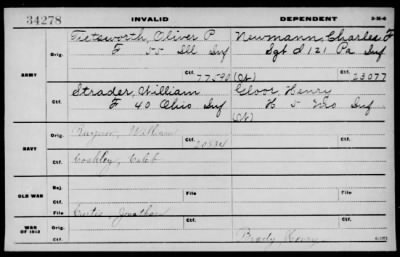 34278 INVALID DEPENDENT 3-35-6
Tietsworth, Oliver P. Newmann, Charles F
ARMY Orig. F 55 Ill Inf Sgt d 121 Pa Inf
Ctf. 77,590 (Ct) Ctf. 23077
Strader, William Gloor Henry
Ctf. F 40 Ohio Inf H 5 Mo Inf
(Ct)
NAVY Orig. William Ctf.
Ctf. Coakley, Caleb
OLD WAR Rej.
Ctf. File File
WAR OF 1812 Orig. Curtis Jonathan Ctf. Ctf.
Ctf. Brady Henry